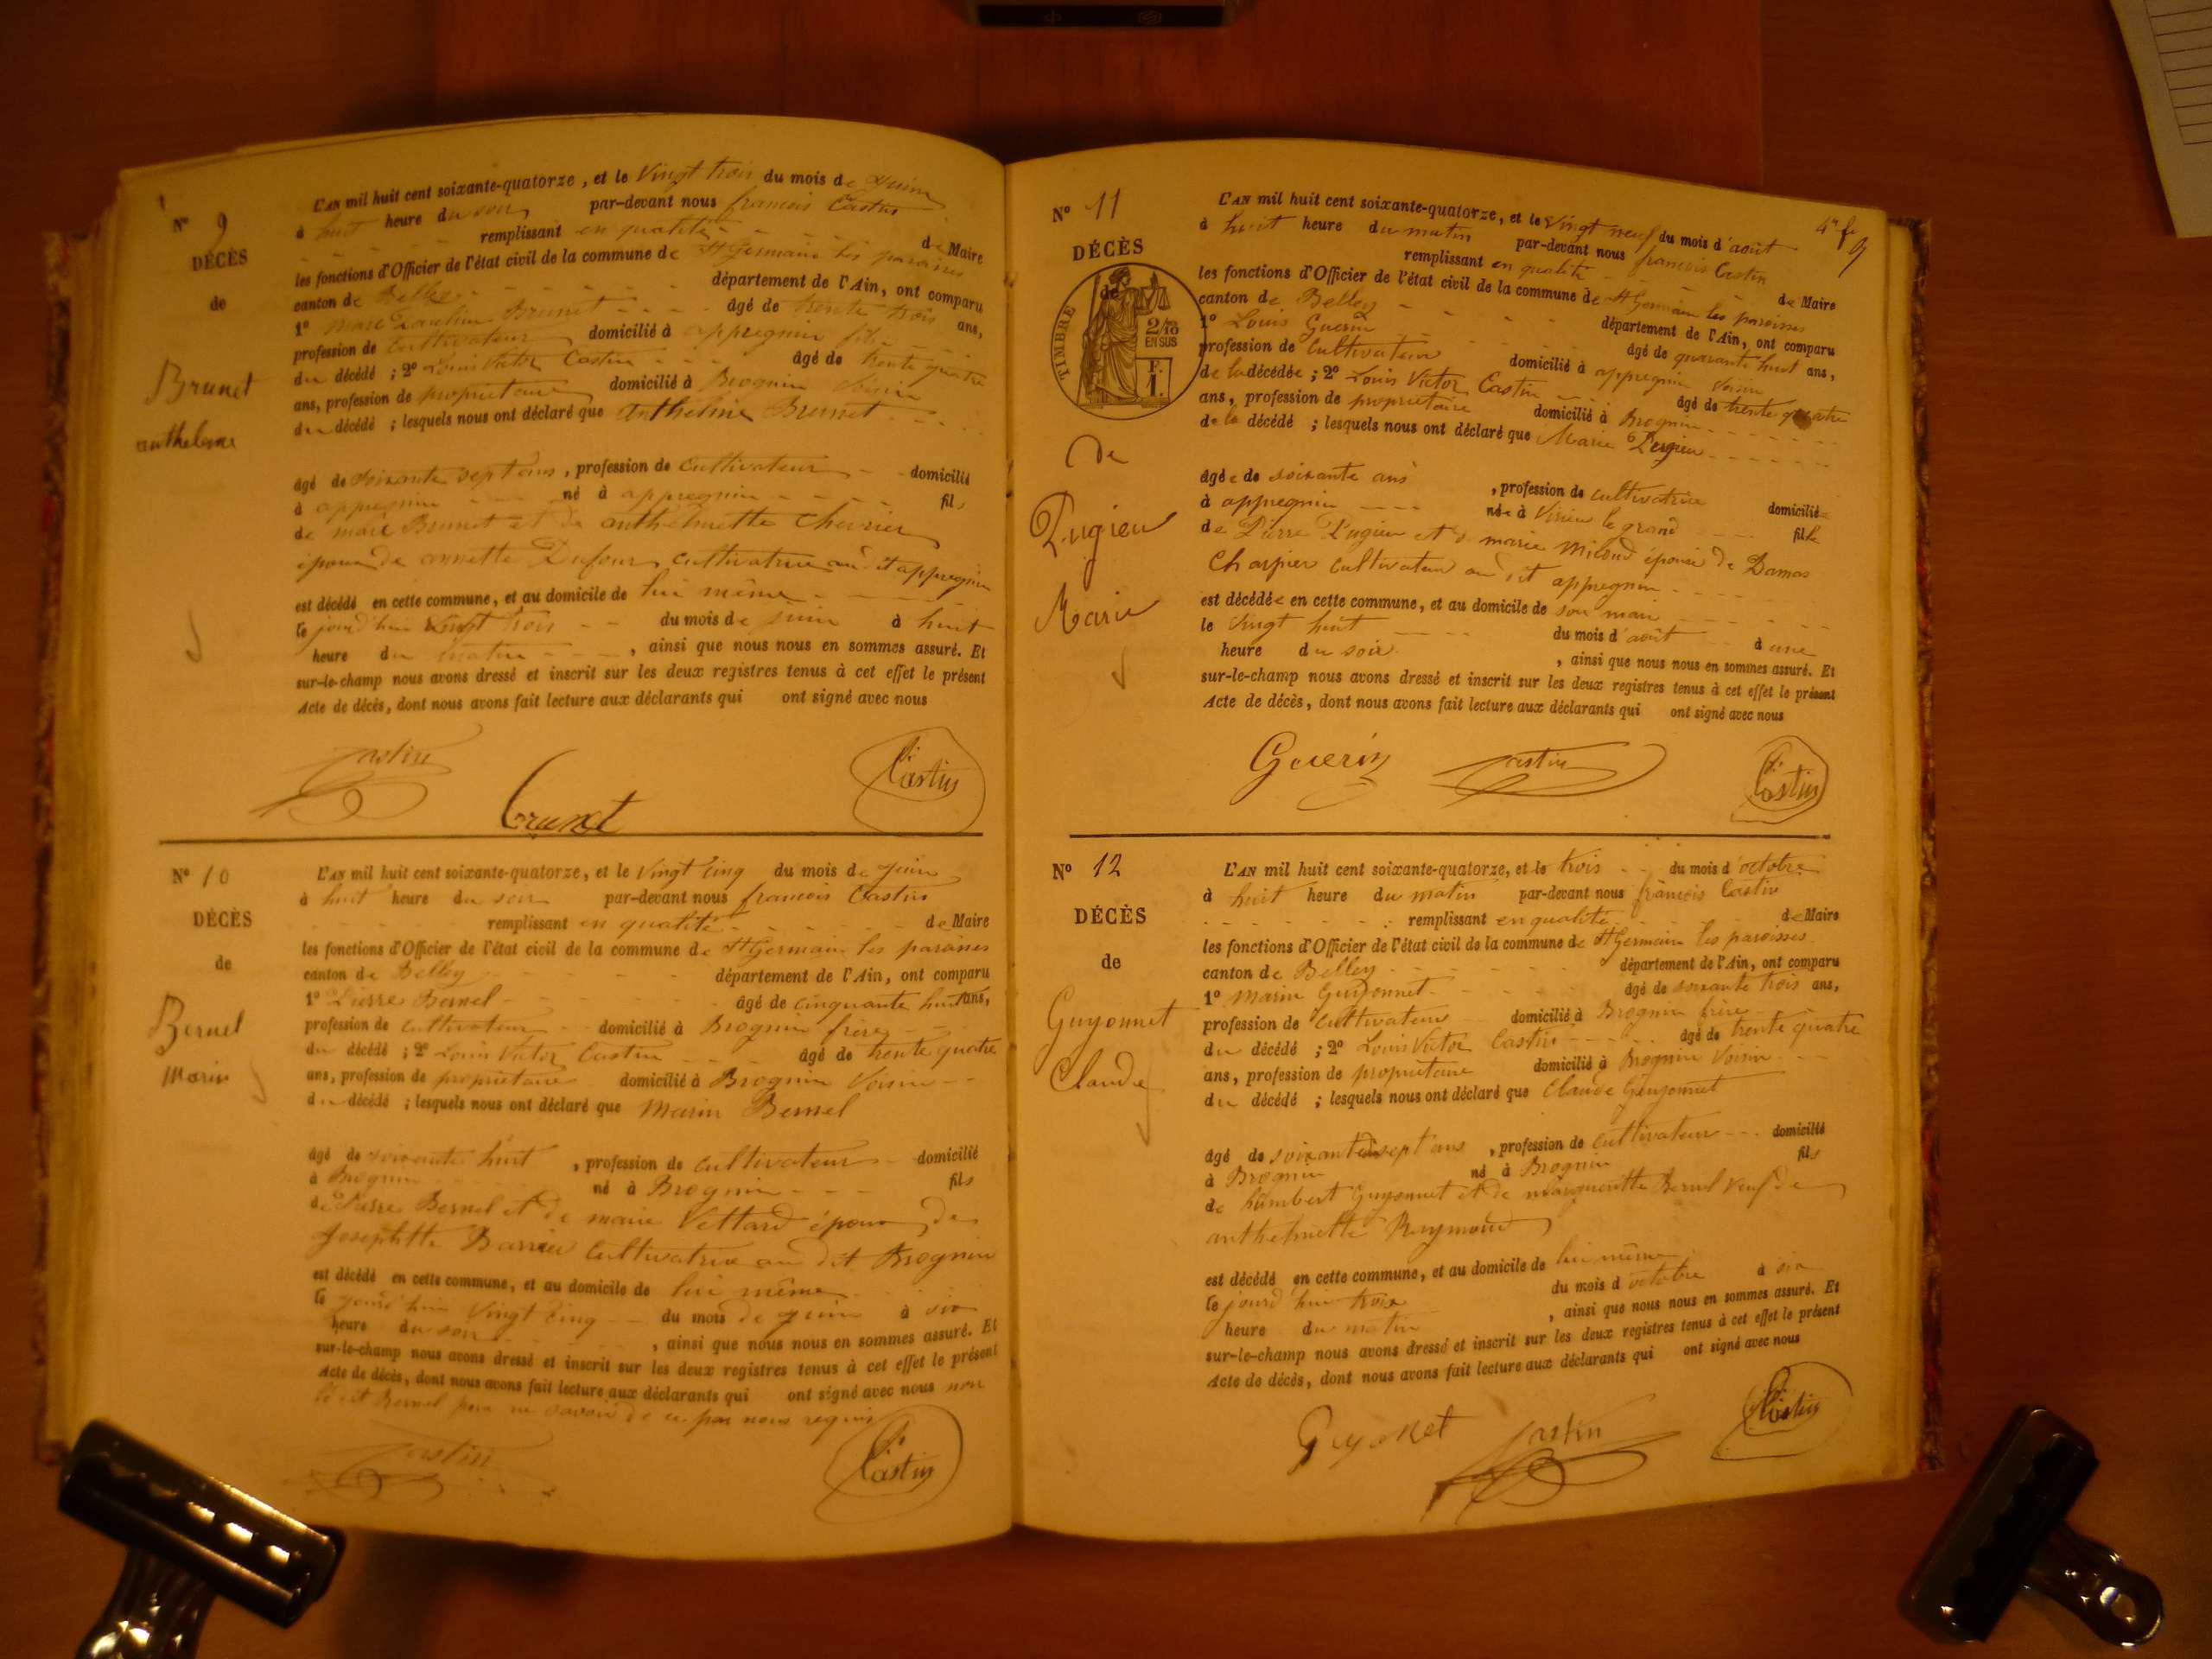 N° 9
DÉCÈS
de
Brunet
anthelme
L'AN mil huit cent soixante-quatorze, et le Vingt trois du mois de juin
à huit heure du soir par-devant nous francois Castin
remplissant en qualité de Maire
les fonctions d'Officier de l'état civil de la commune de St Germain les paroisses
canton de Belley département de l'Ain, ont comparu
1° Brunet âgé de trente trois ans,
profession de Cultivateur domicilié à appregnin fils
du décédé ; 2° Louis Victor Castin âgé de trente quatre
ans, profession de propriétaire domicilié à Brognin Voisin
du décédé ; lesquels nous ont déclaré que anthelme Brunet
âgé de soixante sept ans, profession de Cultivateur domicilié
à appregnin né à appregnin fils
de marc Brunet et de anthelmette Chevrier
époux de annette Dufour cultivatrice au dit appregnin
est décédé en cette commune, et au domicile de lui même
le jourd'hui Vingt trois du mois de juin à huit
heure du matin, ainsi que nous nous en sommes assuré. Et
sur-le-champ nous avons dressé et inscrit sur les deux registres tenus à cet effet le présent
Acte de décès, dont nous avons fait lecture aux déclarants qui ont signé avec nous
Castin Brunet Castin
N° 10
DÉCÈS
de
Bernel
Marin
L'AN mil huit cent soixante-quatorze, et le Vingt Cinq du mois de juin
à huit heure du soir par-devant nous francois Castin
remplissant en qualité de Maire
les fonctions d'Officier de l'état civil de la commune de St Germain les paroisses
canton de Belley département de l'Ain, ont comparu
1° Pierre Bernel âgé de cinquante huit ans,
profession de Cultivateur domicilié à Brognin frère
du décédé ; 2° Louis Victor Castin âgé de trente quatre
ans, profession de propriétaire domicilié à Brognin Voisin
du décédé ; lesquels nous ont déclaré que Marin Bernel
âgé de soixante huit, profession de Cultivateur domicilié
à Brognin né à Brognin fils
de Pierre Bernel et de marie Vettard époux de
Josephtte Barrier Cultivatrice au dit Brognin
est décédé en cette commune, et au domicile de lui même
le jourd'hui Vingt Cinq du mois de juin à six
heure du soir, ainsi que nous nous en sommes assuré. Et
sur-le-champ nous avons dressé et inscrit sur les deux registres tenus à cet effet le présent
Acte de décès, dont nous avons fait lecture aux déclarants qui ont signé avec nous non
le dit Bernel pour ne savoir de ce par nous requis
Castin Castin
N° 11
DÉCÈS
de
TIMBRE
2/10
EN SUS
F.
1.
de
Pugieu
Marie
L'AN mil huit cent soixante-quatorze, et le Vingt neuf du mois d'août
à huit heure du matin par-devant nous francois Castin
remplissant en qualité de Maire
les fonctions d'Officier de l'état civil de la commune de St Germain les paroisses
canton de Belley département de l'Ain, ont comparu
1° Louis Guerin âgé de quarante huit ans,
profession de Cultivateur domicilié à appregnin Voisin
de la décédée ; 2° Louis Victor Castin âgé de trente quatre
ans, profession de propriétaire domicilié à Brognin
de la décédé ; lesquels nous ont déclaré que Marie Pugieu
âgée de soixante ans, profession de Cultivatrice domiciliée
à appregnin née à Virieu le grand fille
de Pierre Pugieu et de marie Miloud épouse de Damas
Charpier Cultivateur au dit appregnin
est décédée en cette commune, et au domicile de son mari
le Vingt huit du mois d'août à une
heure du soir, ainsi que nous nous en sommes assuré. Et
sur-le-champ nous avons dressé et inscrit sur les deux registres tenus à cet effet le présent
Acte de décès, dont nous avons fait lecture aux déclarants qui ont signé avec nous
Guerin Castin Castin
N° 12
DÉCÈS
de
Guyonnet
Claude
L'AN mil huit cent soixante-quatorze, et le trois du mois d'octobre
à huit heure du matin par-devant nous francois Castin
remplissant en qualité de Maire
les fonctions d'Officier de l'état civil de la commune de St Germain les paroisses
canton de Belley département de l'Ain, ont comparu
1° Marin Guyonnet âgé de soixante trois ans,
profession de Cultivateur domicilié à Brognin frère
du décédé ; 2° Louis Victor Castin âgé de trente quatre
ans, profession de propriétaire domicilié à Brognin Voisin
du décédé ; lesquels nous ont déclaré que Claude Guyonnet
âgé de soixante sept ans, profession de Cultivateur domicilié
à Brognin né à Brognin fils
de humbert Guyonnet et de margueritte Bernel Veuf de
anthelmette Reymond
est décédé en cette commune, et au domicile de lui même
le jourd'hui trois du mois d'octobre à six
heure du matin, ainsi que nous nous en sommes assuré. Et
sur-le-champ nous avons dressé et inscrit sur les deux registres tenus à cet effet le présent
Acte de décès, dont nous avons fait lecture aux déclarants qui ont signé avec nous
Guyonet Castin Castin